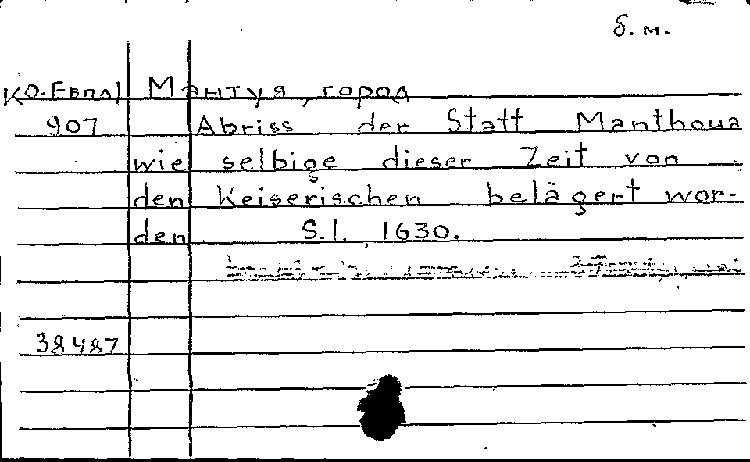 б. м.
Мантуя, город
907 Abriss der Statt Manthoua
wie selbige dieser Zeit von
den Keiserischen belägert wor-
den S.l., 1630.
38487